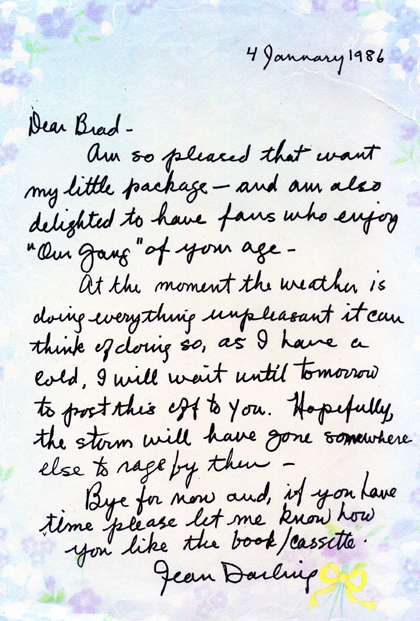 4 January 1986
Dear Brad -
Am so pleased that want
my little package - and am also
delighted to have fans who enjoy
"Our Gang" of your age -
At the moment the weather is
doing everything unpleasant it can
think of doing so, as I have a
cold, I will wait until tomorrow
to post this off to you. Hopefully,
the storm will have gone somewhere
else to rage by then -
Bye for now and, if you have
time please let me know how
you like the book/cassette.
Jean Darling